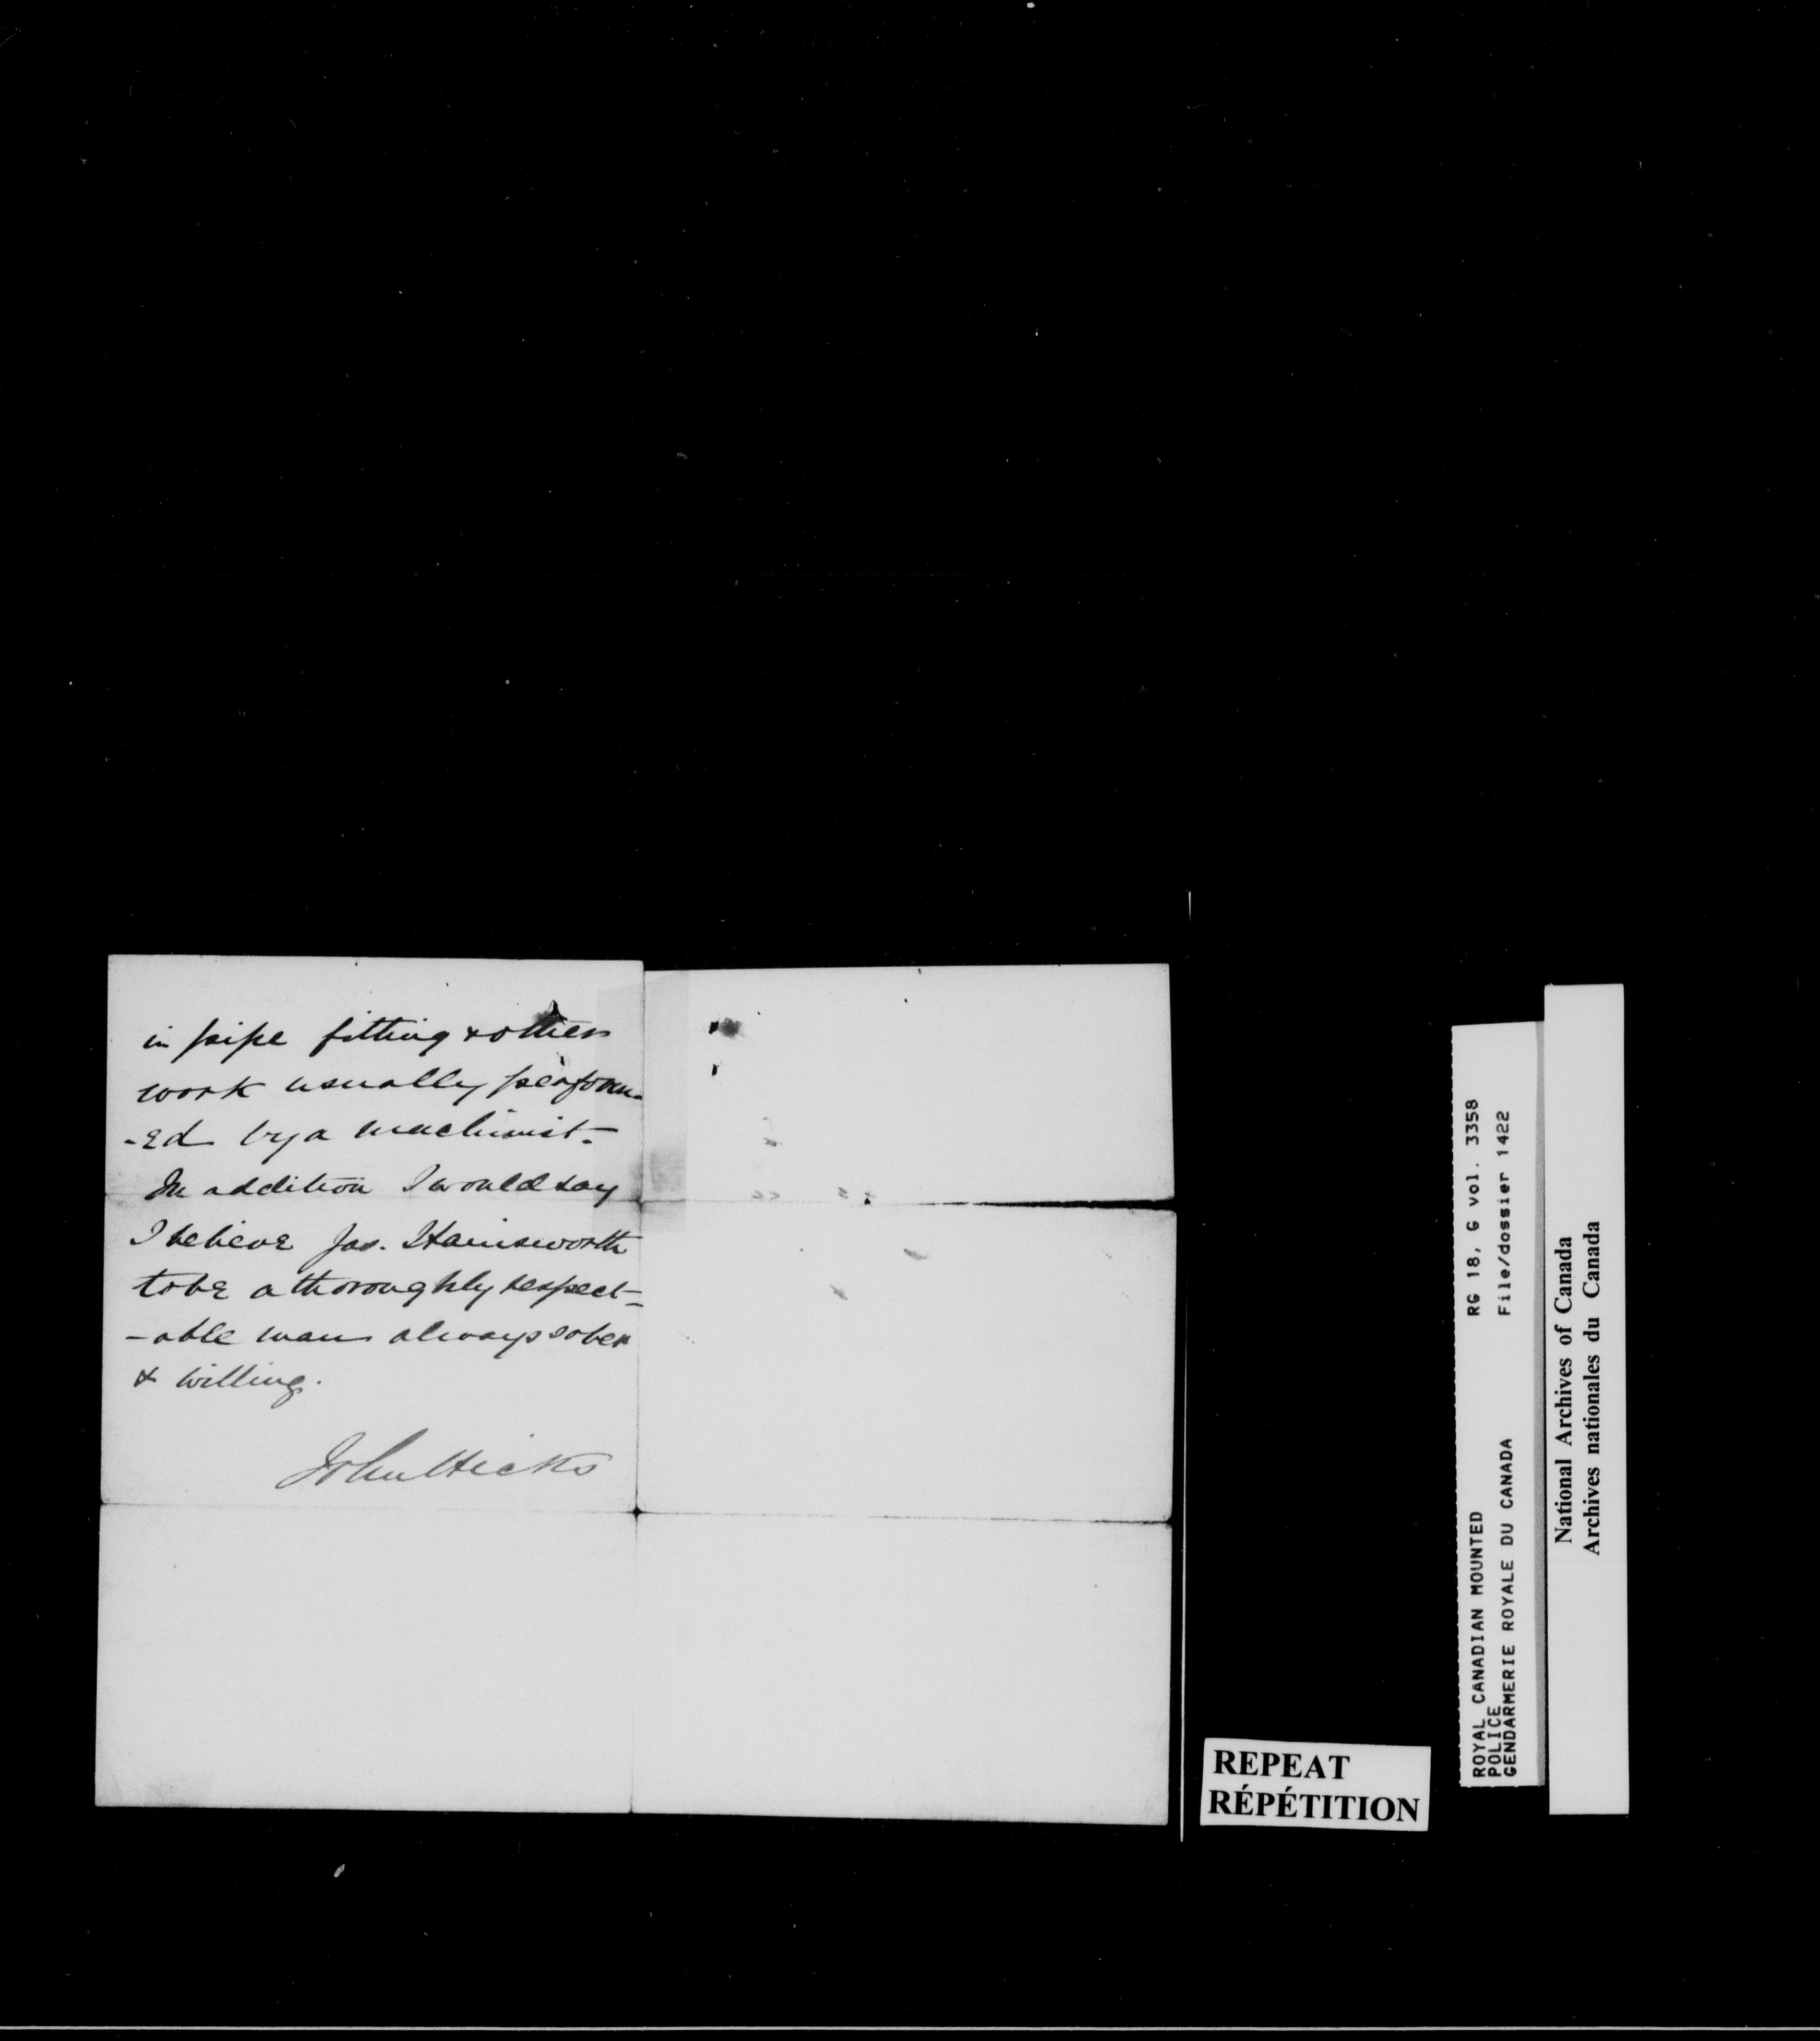 in pipe fitting & other
work usually perform-
-ed by a machinist-
In addition I would say
I believe Jas. Hainsworth
to be a thoroughly respect-
-able man always sober
& willing.
John Hicks
REPEAT
RÉPÉTITION
ROYAL CANADIAN MOUNTED
POLICE
GENDARMERIE ROYALE DU CANADA
RG 18, G vol. 3358
File/dossier 1422
National Archives of Canada
Archives nationales du Canada